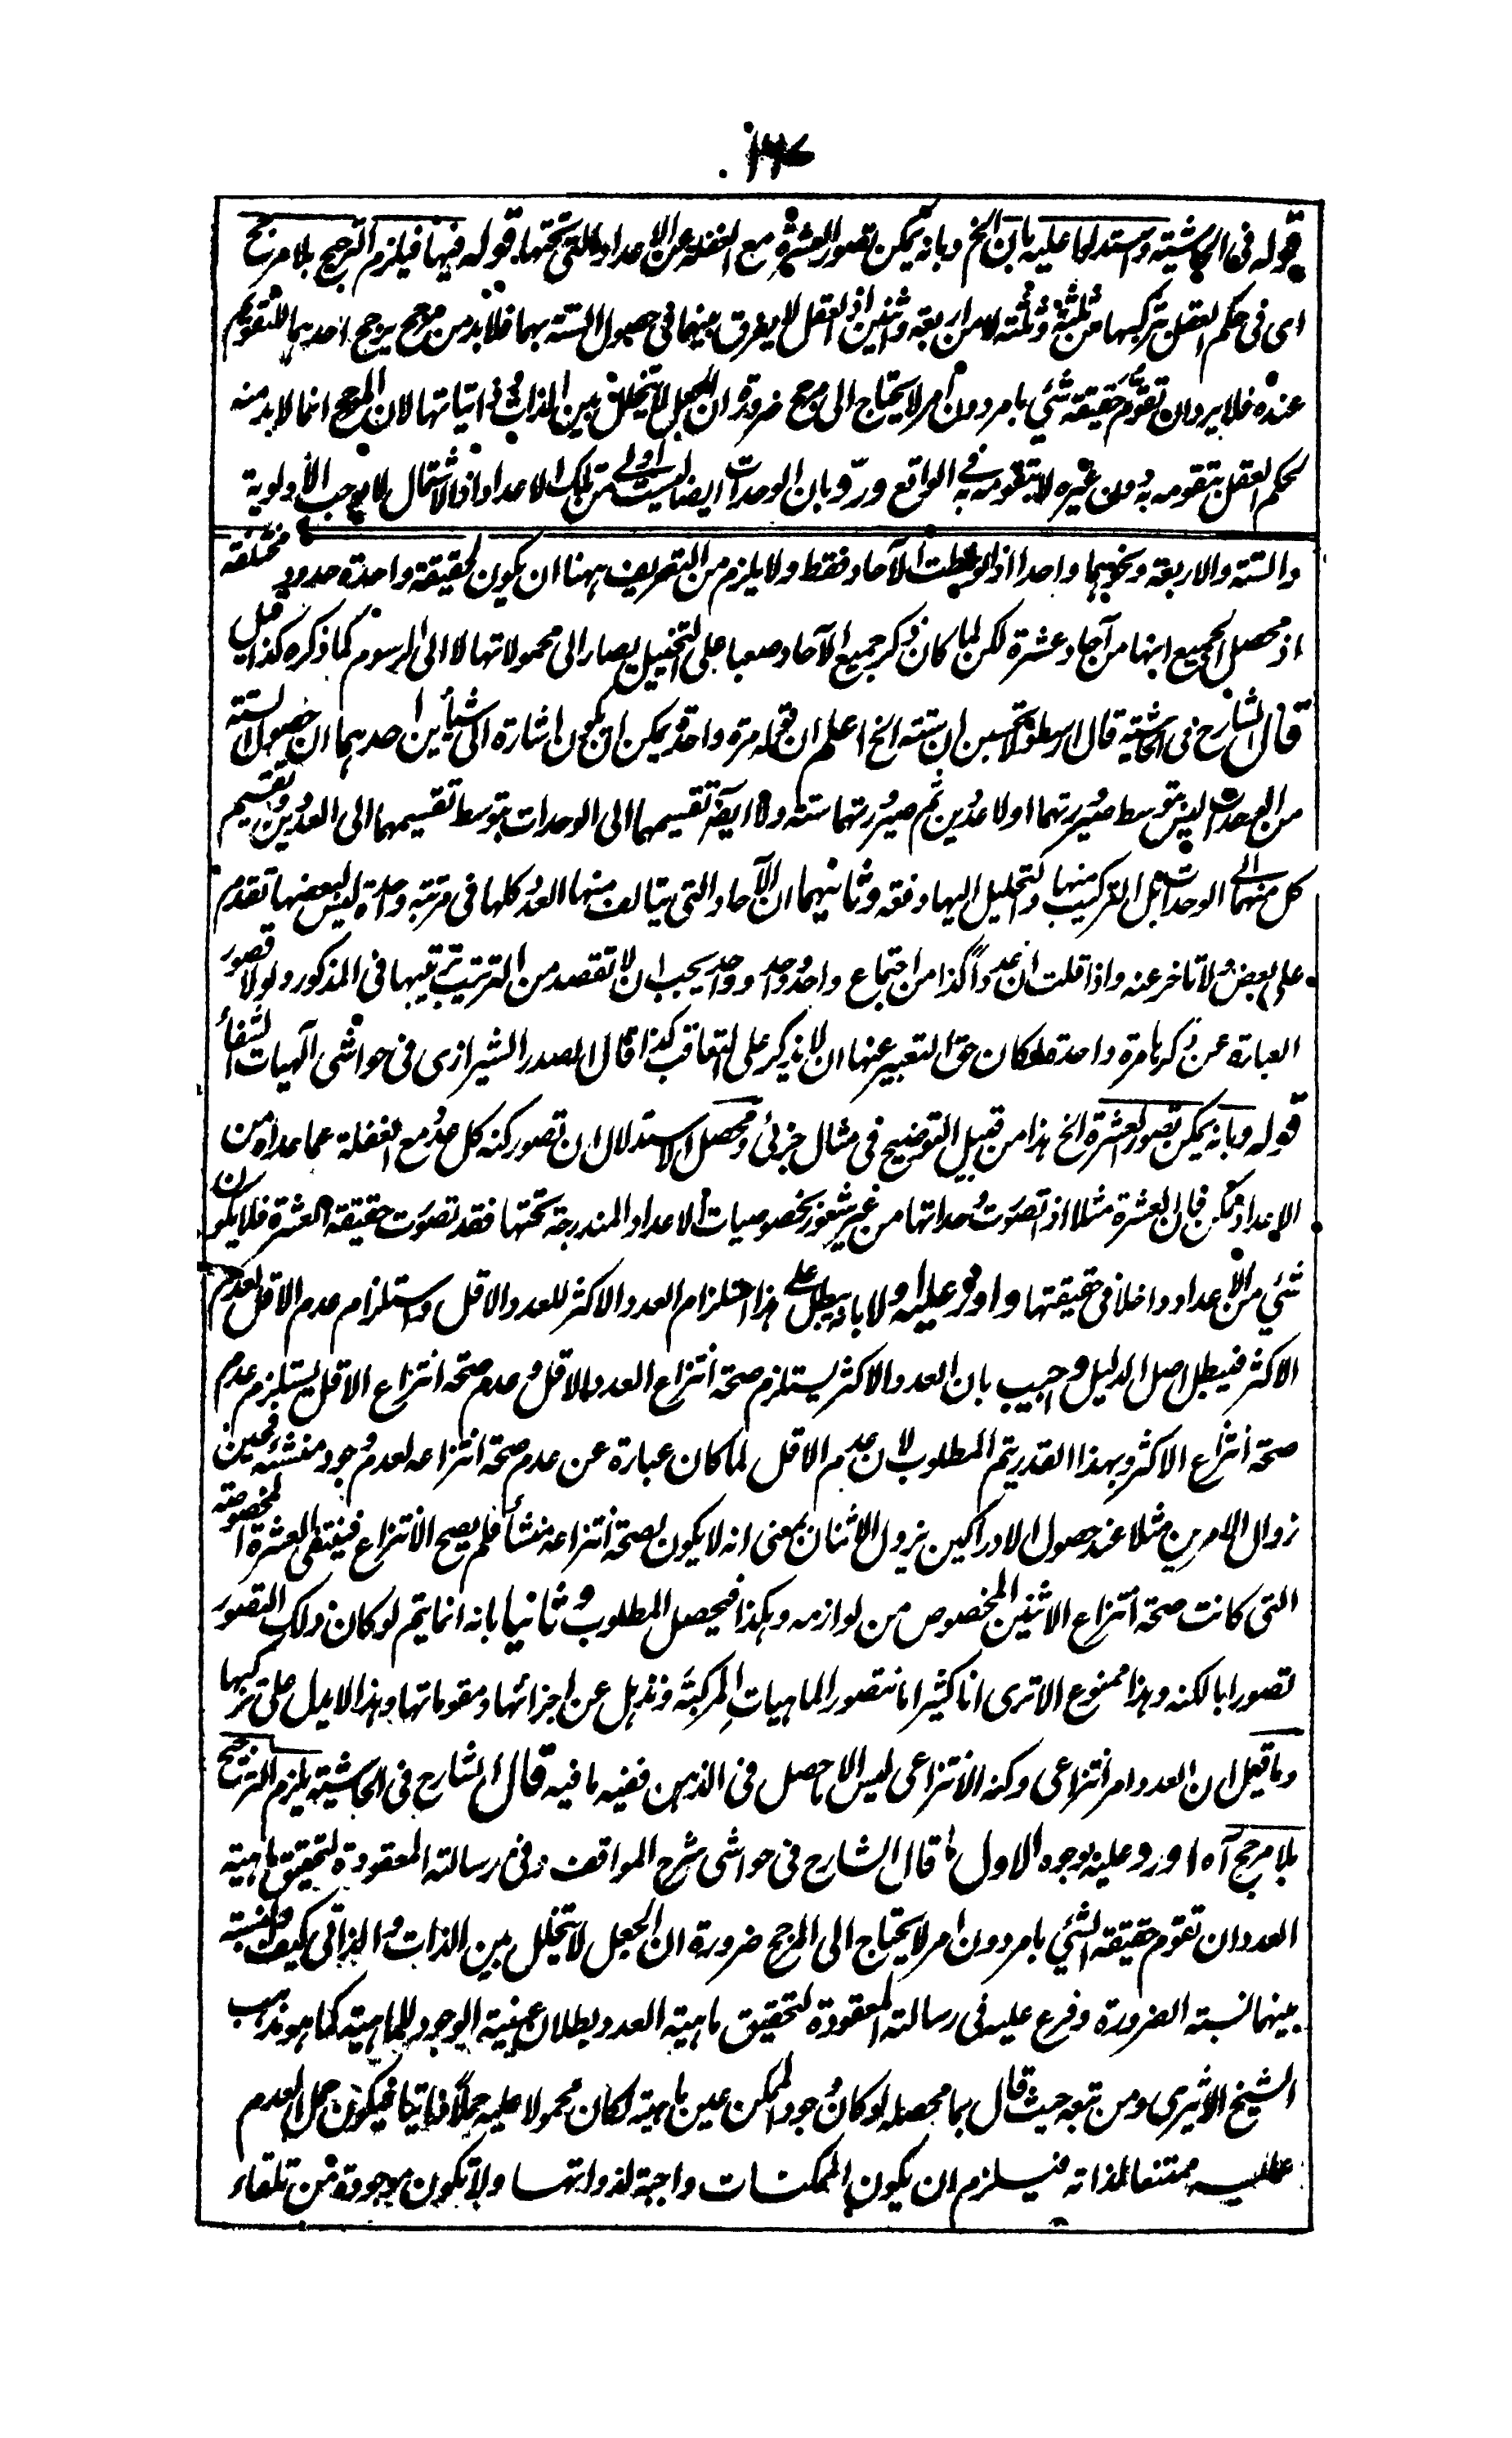 ١٦٧
قوله فى الحاشية واستدلوا عليه بان الخ وبانه يمكن تصور العشرة مع الغفلة عن الاعداد التى تحتها قوله فيها فيلزم الترجيح بلا مرجح
اى فى حكم العقل بتركبها من ثلثة وثلثة لا من اربعة واثنين اذ العقل لا يفرق بينهما فى حصول الستة بهما فلا بد من مرجح يرجح احدهما للتقويم
عنده فلا يرد ان تقوم حقيقة شئ بامر دون امر لا يحتاج الى مرجح ضرورة ان الجعل لا يتخلل بين الذات وذاتياتها لان المرجح انما لا بد منه
لحكم العقل بتقومه به دون غيره لا بتقومه به فى الواقع ورد بان الوحدات ايضا ليست اولى من تلك الاعداد اذ الاشتمال لا يوجب الأولوية
والستة والاربعة ونحوهما واحدا اذا لوحظت الآحاد فقط ولا يلزم من التعريف ههنا ان يكون لحقيقة واحدة حدود مختلفة
اذ محصل الجميع انها من آحاد عشرة لكن لما كان ذكر جميع الآحاد صعبا على التخييل يصار الى محمولاتها لا الى الرسوم كما ذكره كذا قيل
قال الشارح فى الحاشية قال ارسطو لا تحسبن ان ستة الخ اعلم ان قوله مرة واحدة يمكن ان يكون اشارة الى شيأين احدهما ان حصول الستة
من الوحدات ليس بتوسط صيرورتهما اولا عددين ثم صيرورتهما ستة ولا ايضا تقسيمها الى الوحدات بتوسط تقسيمهما الى العددين وتقسيم
كل منهما الى الوحدات بل التركيب منها والتحليل اليها دفعة وثانيهما ان الآحاد التى يتالف منها العدد كلها فى مرتبة واحدة ليس لبعضها تقدم
على بعض ولا تاخر عنه واذا قلت ان عددا كذا من اجتماع واحد وواحد وواحد يجب ان لا تقصد من الترتيب ترتيبها فى المذكور ولولا قصور
العبارة عن ذكرها مرة واحدة لكان حق التعبير عنها ان لا يذكر على التعاقب كذا قال الصدر الشيرازى فى حواشى آلهيات الشفاء
قوله وبانه يمكن تصور العشرة الخ هذا من قبيل التوضيح فى مثال جزئى ومحصل الاستدلال ان تصور كنه كل عدد مع الغفلة عما عداه من
الاعداد ممكن فان العشرة مثلا اذا تصورت وحداتها من غير شعور بخصوصيات الاعداد المندرجة تحتها فقد تصورت حقيقة العشرة فلا يكون
شئ من الاعداد داخلا فى حقيقتها واورد عليه اولا بانه يبطل على هذا استلزام العدد الاكثر للعدد الاقل واستلزام عدم الاقل لعدم
الاكثر فيبطل اصل الدليل واجيب بان العدد الاكثر يستلزم صحة انتزاع العدد الاقل وعدم صحة انتزاع الاقل يستلزم عدم
صحة انتزاع الاكثر وبهذا القدر يتم المطلوب لان عدم الاقل لما كان عبارة عن عدم صحة انتزاعه لعدم وجود منشئه فحين
زوال الامرين مثلا عند حصول الادراكين يزول الاثنان بمعنى انه لا يكون لصحة انتزاعه منشأ فلم يصح الانتزاع فينتفى العشرة المخصوصة
التى كانت صحة انتزاع الاثنين المخصوص من لوازمه وهكذا فيحصل المطلوب وثانيا بانه انما يتم لو كان ذلك التصور
تصورا بالكنه وهذا ممنوع الا ترى انا كثيرا ما نتصور الماهيات المركبة ونذهل عن اجزائها ومقوماتها وهذا لا يدل على تركبها
وما قيل ان العدد امر انتزاعى وكنه الانتزاعى ليس الا ما حصل فى الذهن ففيه ما فيه قال الشارح فى الحاشية يلزم الترجيح
بلا مرجح آه اورد عليه بوجوه الاول ما قال الشارح فى حواشى شرح المواقف وفى رسالته المعقودة لتحقيق ماهية
العدد ان تقوم حقيقة الشئ بامر دون امر لا يحتاج الى المرجح ضرورة ان الجعل لا يتخلل بين الذات والذاتى كيف والنسبة
بينهما نسبة الضرورة وفرع عليه فى رسالته المعقودة لتحقيق ماهية العدد بطلان عينية الوجود للماهية كما هو مذهب
الشيخ الاشعرى ومن تبعه حيث قال بما محصله لو كان وجود الممكن عين ماهيته لكان محمولا عليه حملا ذاتيا فيكون حمل العدم
عليه ممتنعا لذاته فيلزم ان يكون الممكنات واجبة لذواتها ولا تكون موجودة من تلقاء